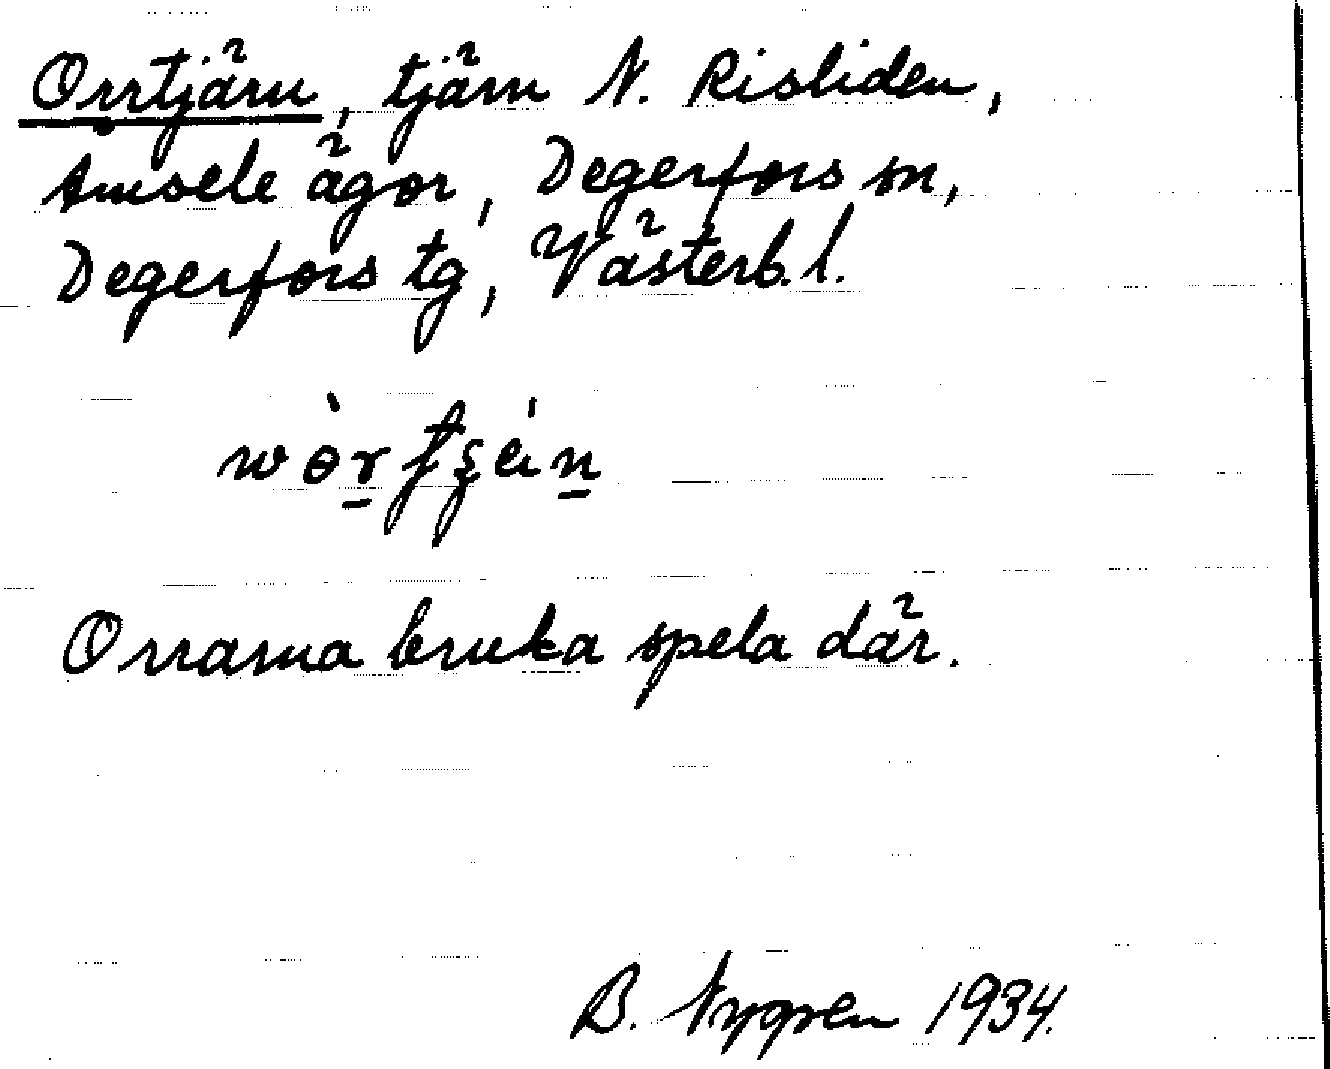 Orrtjärn, tjärn N. Risliden,
Åmsele ägor, Degerfors sn,
Degerfors tg, Västerb. l.
Orrarna bruka spela där.
B. Nygren 1934.